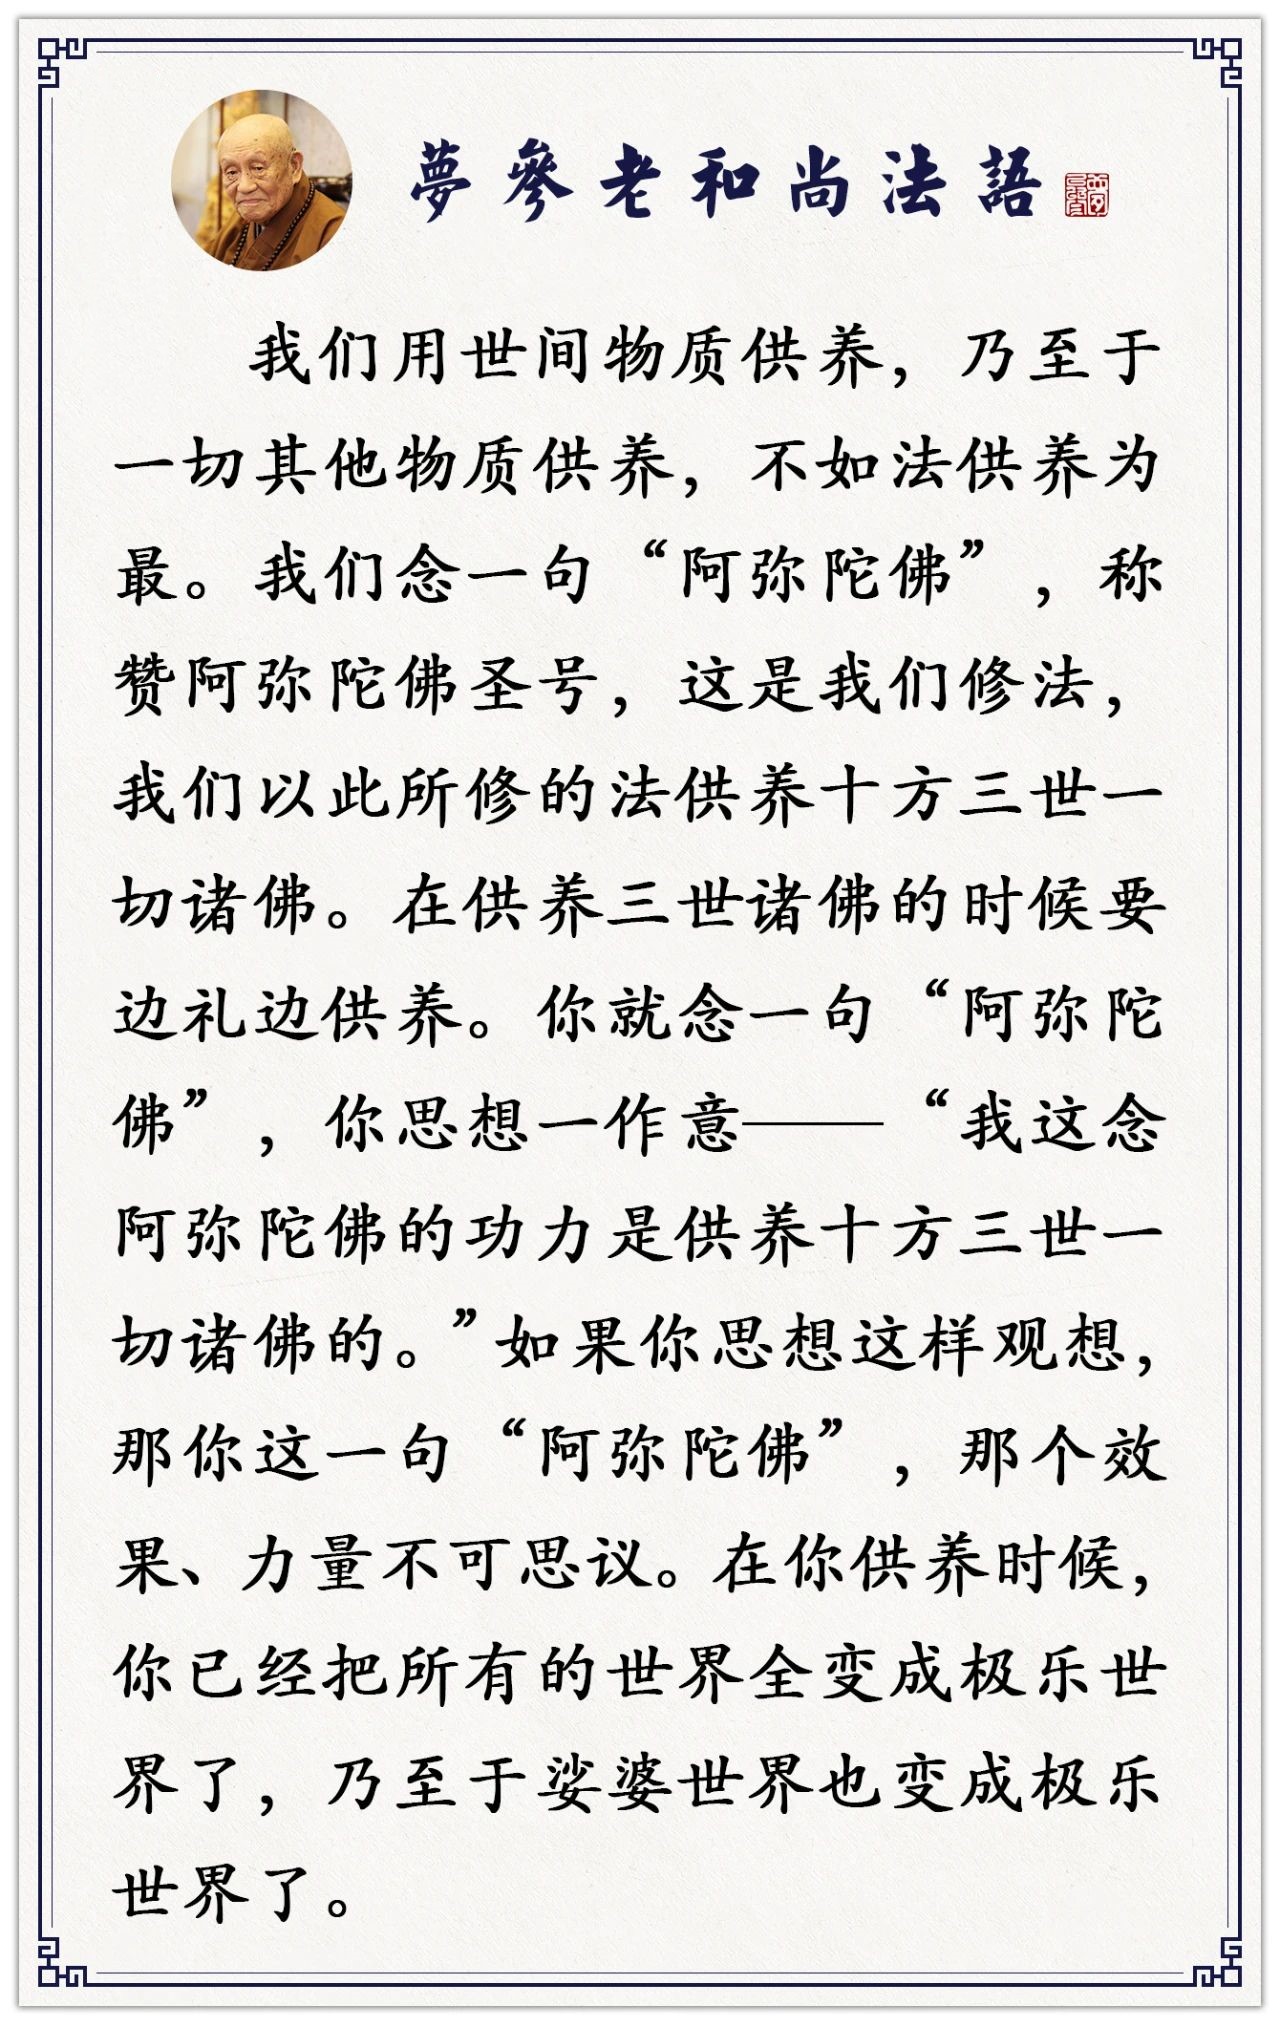 夢參老和尚法語
我们用世间物质供养，乃至于
一切其他物质供养，不如法供养为
最。我们念一句“阿弥陀佛”，称
赞阿弥陀佛圣号，这是我们修法，
我们以此所修的法供养十方三世一
切诸佛。在供养三世诸佛的时候要
边礼边供养。你就念一句“阿弥陀
佛”，你思想一作意——“我这念
阿弥陀佛的功力是供养十方三世一
切诸佛的。”如果你思想这样观想，
那你这一句“阿弥陀佛”，那个效
果、力量不可思议。在你供养时候，
你已经把所有的世界全变成极乐世
界了，乃至于娑婆世界也变成极乐
世界了。